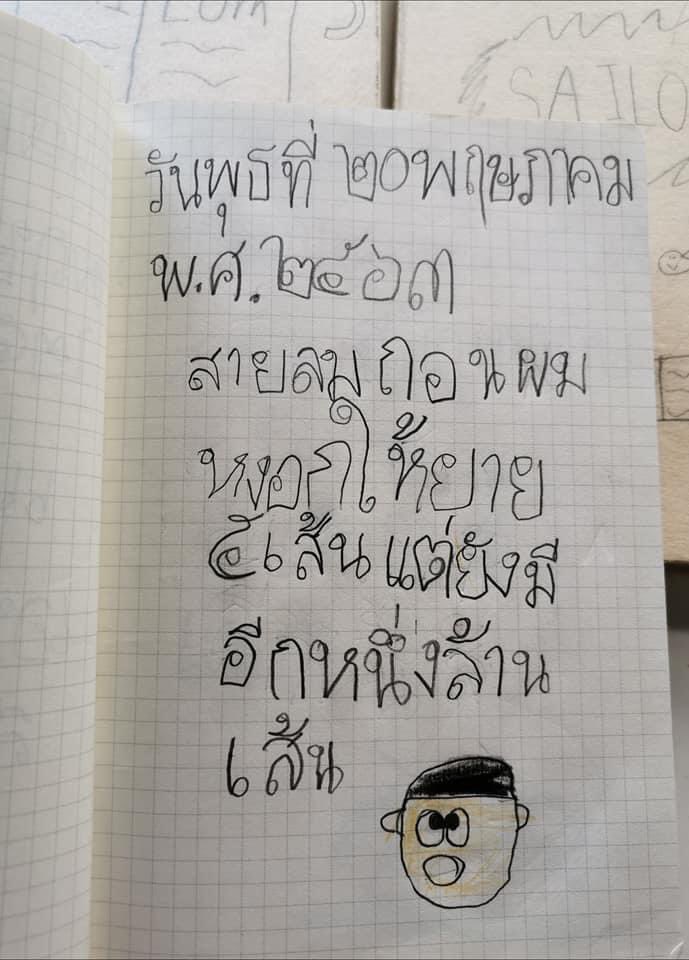 วันพุธที่ ๒๐พฤษภาคม
พ.ศ.๒๕๖๓
สายลม ถอนผม
หงอกให้ยาย
๕เส้น แต่ยังมี
อีกหนึ่งล้าน
เส้น
SAILO